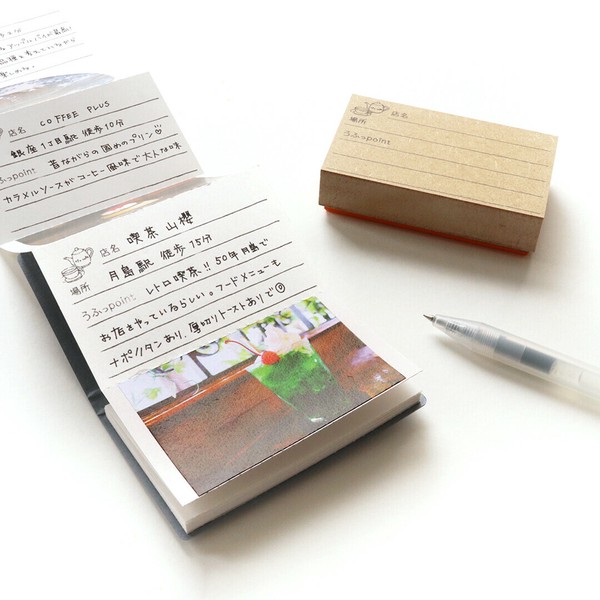 楽しめる!
店名 COFFEE PLUS
銀座1丁目駅 徒歩10分
うふっpoint 昔ながらの固めのプリン♡
カラメルソースがコーヒー風味で大人な味
店名 喫茶 山櫻
場所 月島駅 徒歩15分
うふっpoint レトロ喫茶!! 50年月島で
お店をやっているらしい。フードメニューも
ナポリタンあり、厚切りトーストありで☺
店名
場所
うふっpoint